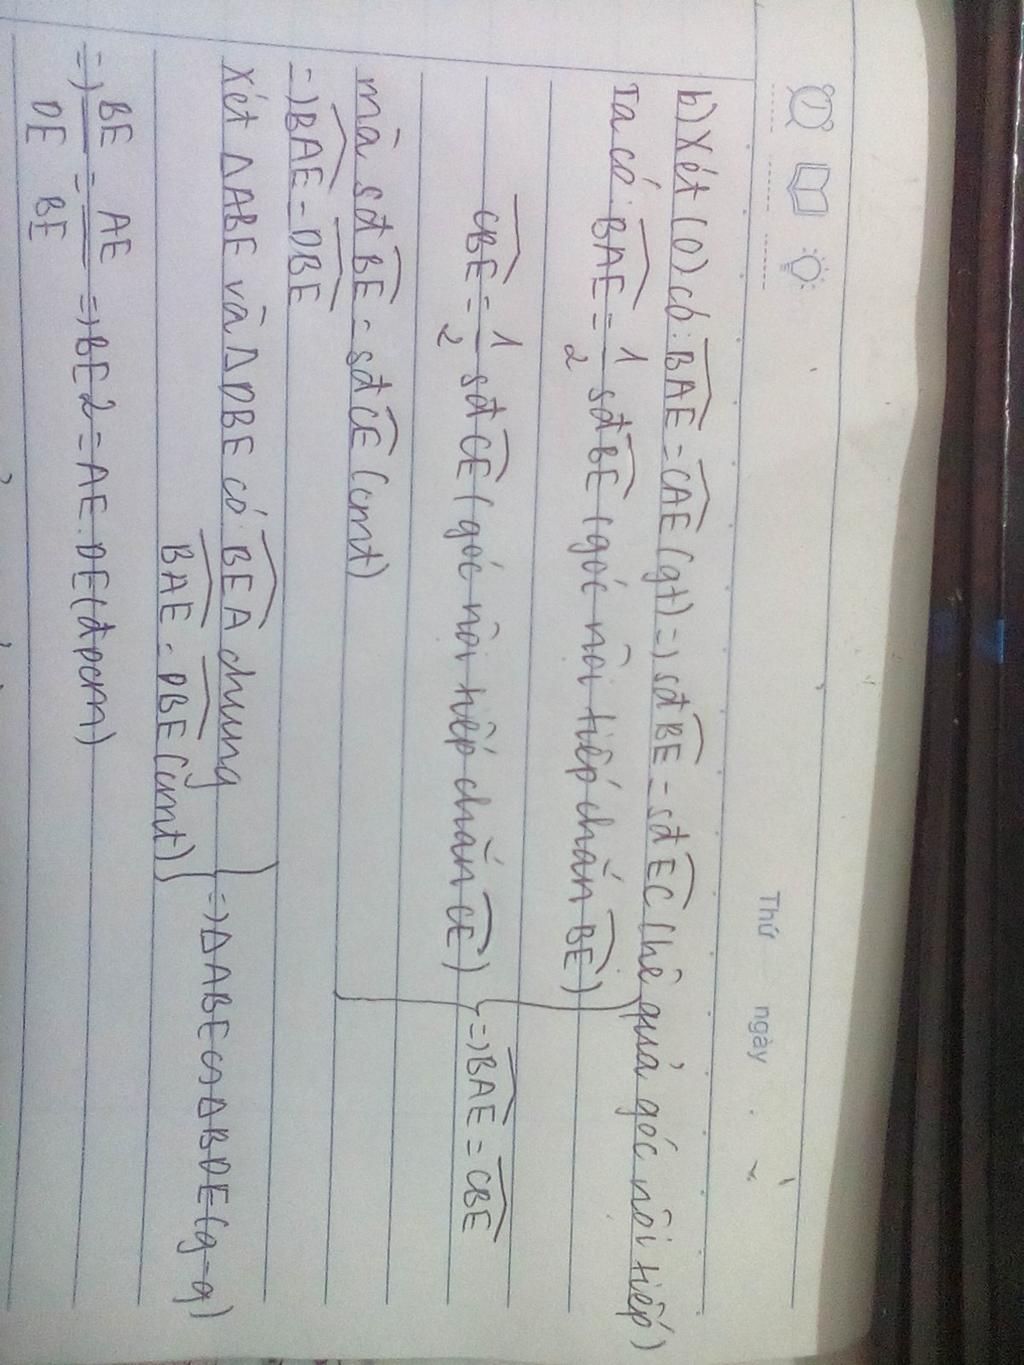 Thứ ngày
b) Xét (O) có: BAE = CAE (gt) => sđ BE = sđ EC (hệ quả góc nội tiếp)
Ta có: BAE = 1/2 sđ BE (góc nội tiếp chắn BE)
CBE = 1/2 sđ CE (góc nội tiếp chắn CE) => BAE = CBE
mà sđ BE = sđ CE (cmt)
=> BAE = DBE
Xét ΔABE và ΔDBE có: BEA chung
BAE = DBE (cmt) => ΔABE ∽ ΔBDE (g-g)
=> BE/DE = AE/BE => BE2 = AE.DE (đpcm)